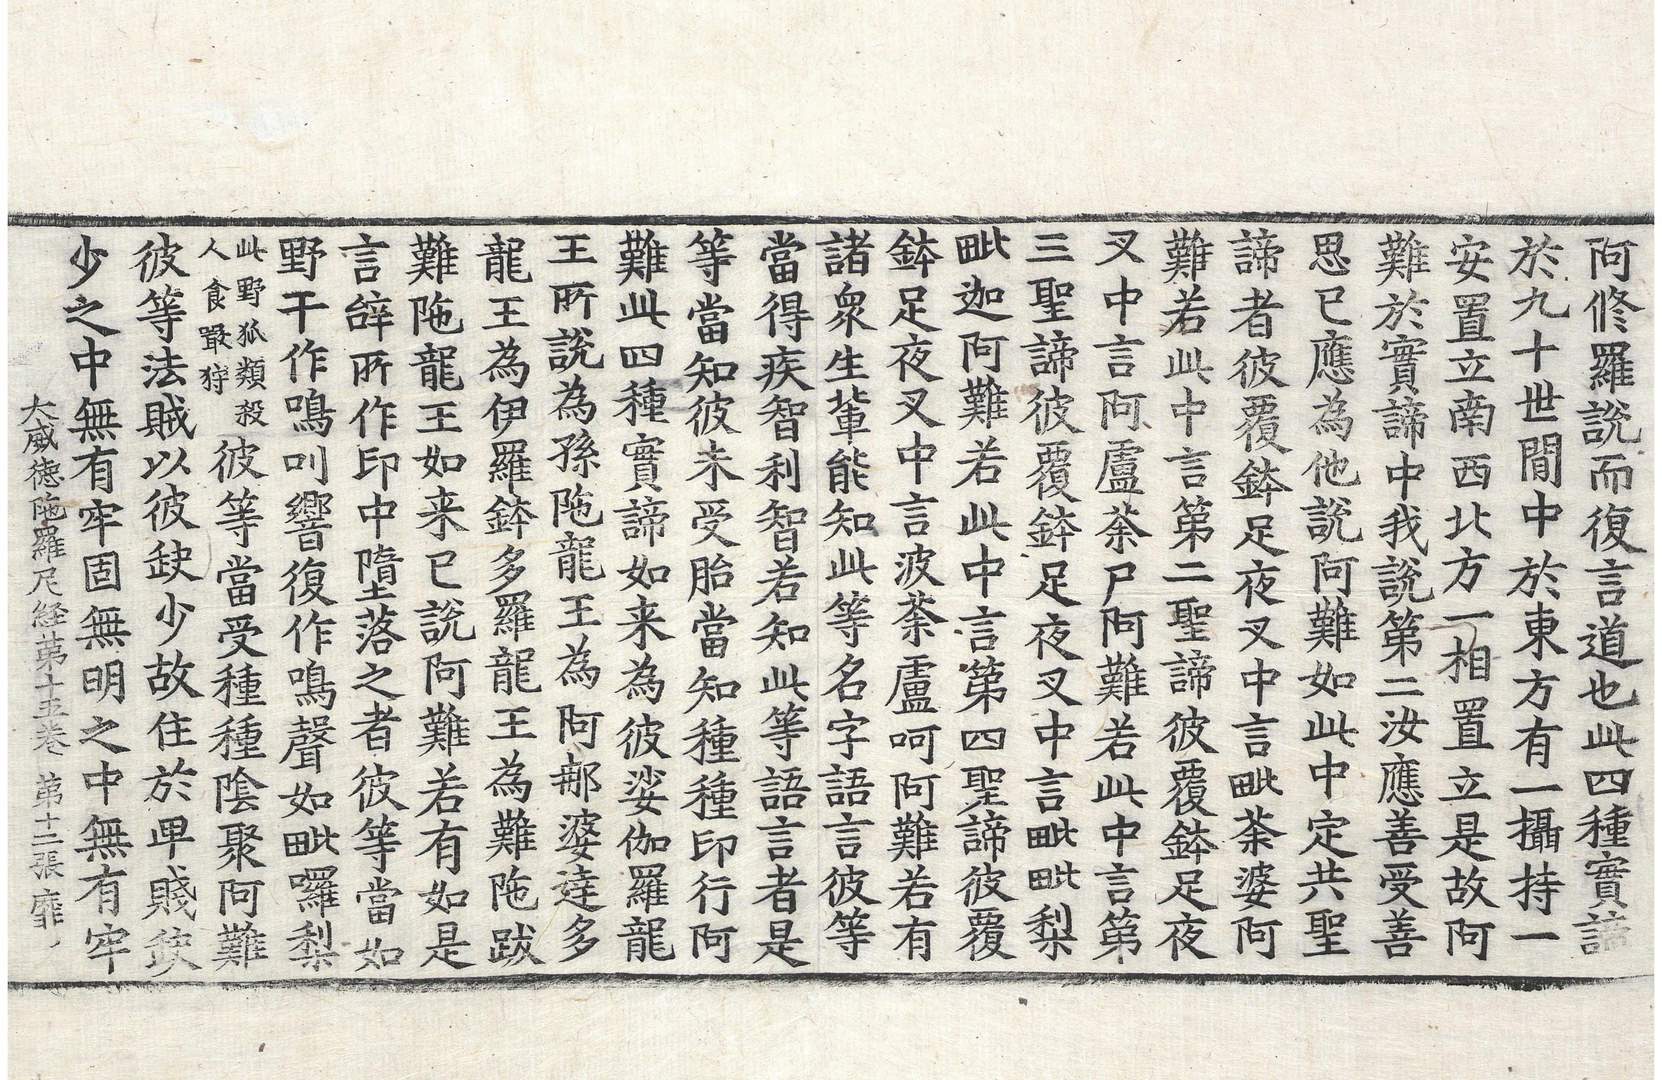 阿修羅說而復言道也此四種實諦
於九十世間中於東方有一攝持一
安置立南西北方一相置立是故阿
難於實諦中我說第二汝應善受善
思已應為他說阿難如此中定共聖
諦者彼覆鉢足夜叉中言毗茶婆阿
難若此中言第二聖諦彼覆鉢足夜
叉中言阿盧荼尸阿難若此中言第
三聖諦彼覆鉢足夜叉中言毗毗梨
毗迦阿難若此中言第四聖諦彼覆
鉢足夜叉中言波荼盧呵阿難若有
諸衆生輩能知此等名字語言彼等
當得疾智利智若知此等語言者是
等當知彼未受胎當知種種印行阿
難此四種實諦如来為彼娑伽羅龍
王所說為孫陁龍王為阿那婆達多
龍王為伊羅鉢多羅龍王為難陁跋
難陁龍王如来已說阿難若有如是
言辞所作印中墮落之者彼等當如
野干作鳴叫響復作鳴聲如毗囉梨
此野狐類殺人食最狩彼等當受種種陰聚阿難
彼等法賊以彼缺少故住於卑賤缺
少之中無有牢固無明之中無有牢
大威德陁羅尼経第十五卷 第十二張 靡